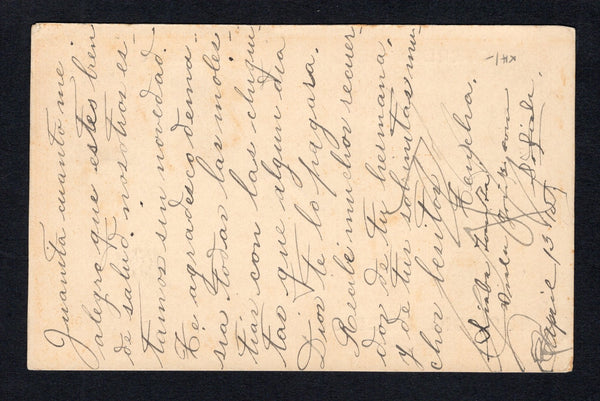 Juanita cuanto me
alegro que estes bien
de salud. nosotros es-
tamos sin novedad.
Te agradesco dema-
sia todas las moles-
tias con las chiqui-
tas que algun dia
Dios te lo pagara.
Recibe muchos recuer-
dos de tu hermana,
y de tus sobrinitas mu-
chos besitos
Concha.
April 13